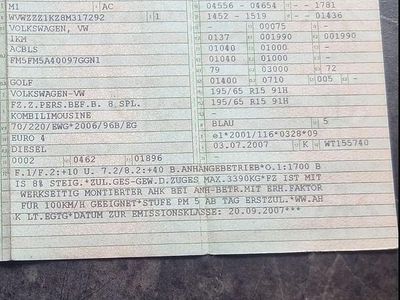 M1 AC 04556 - 04654 - - 1781
WVWZZZ1KZ8M317292 1 1452 - 1519 - - 01436
VOLKSWAGEN, VW 00075 -
1KM 0137 001990 001990
ACBLS 01040 01000 -
FM5FM5A40097GGN1 01040 01000 -
79 03000 72
GOLF 01400 0710 005 -
VOLKSWAGEN-VW 195/65 R15 91H
FZ.Z.PERS.BEF.B. 8 SPL. 195/65 R15 91H
KOMBILIMOUSINE -
70/220/EWG*2006/96B/EG BLAU 5
EURO 4 e1*2001/116*0328*09
DIESEL 03.07.2007 K WT155740
0002 0462 01896 -
F.1/F.2:+10 U. 7.2/8.2:+40 B.ANHAENGEBETRIEB*O.1:1700 B
IS 8% STEIG.*ZUL.GES-GEW.D.ZUGES MAX.3390KG*FZ IST MIT
WERKSEITIG MONTIERTER AHK BEI ANH-BETR.MIT ERH.FAKTOR
FÜR 100KM/H GEEIGNET*STUFE PM 5 AB TAG ERSTZUL.*WW.AH
K LT.EGTG*DATUM ZUR EMISSIONSKLASSE: 20.09.2007***